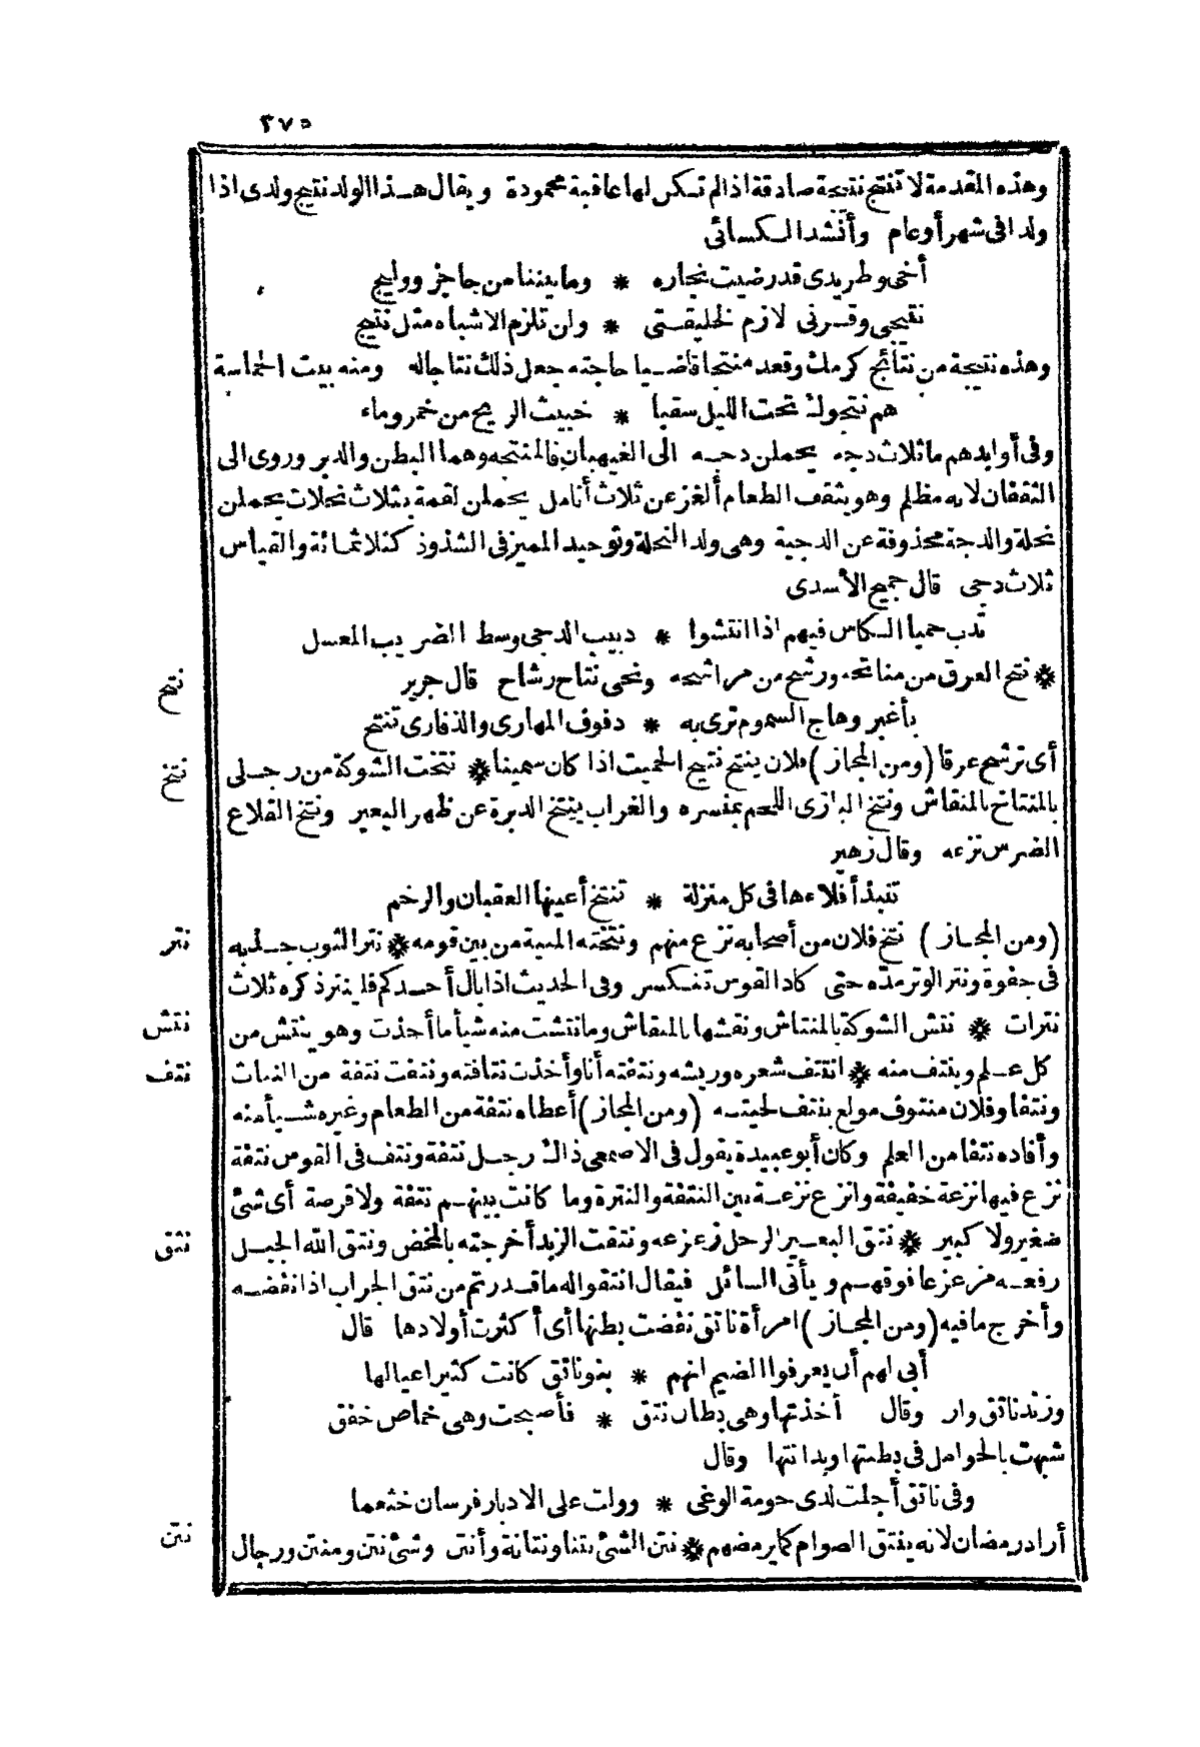 ٢٧٥
وهذه المقدمة لا تنتج نتيجة صادقة اذا لم تكن لها عاقبة محمودة ويقال هذا الولد نتيج ولدى اذا
ولدا فى شهر أو عام وأنشد الكسائى
أخى وطريدى قد رضيت نجاره * وما بيننا من حاجز ووليج
نتيجى وقرنى لازم لخليقتى * ولن تلزم الاشباه مثل نتيج
وهذه نتيجة من نتائج كرمك وقعد منتجا قاضيا حاجته جعل ذلك نتاجاله ومنه بيت الحماسة
هم نتجوك تحت الليل سقبا * خبيث الريح من خمر وماء
وفى أوابدهم ما ثلاث دجه يحملن دجه الى الغيهبان فالمنتجه وهما البطن والدبر وروى الى
الثقفان لانه مظلم وهو يثقف الطعام ألغز عن ثلاث أنامل يحملن لقمة بثلاث نحلات يحملن
نحلة والدجة محذوفة عن الدجية وهى ولد النحلة وتوحيد المميز فى الشذوذ كثلاثمائة والقياس
ثلاث دجى قال جميح الأسدى
تدب حميا الكاس فيهم اذا انتشوا * دبيب الدجى وسط الضريب المعسل
نتح
* نتح العرق من مناتحه ورشح من مراشحه ونحى نتاح رشاح قال جرير
بأغبر وهاج السموم ترى به * دفوف المهارى والذفارى تنتح
نتخ
أى ترشح عرقا (ومن المجاز) فلان ينتح نتيح الحميت اذا كان سمينا * نتخت الشوكة من رجلى
بالمنتاخ بالمنقاش ونتخ البازى اللحم بمنسره والغراب ينتخ الدبرة عن ظهر البعير ونتخ القلاع
الضرس نزعه وقال زهير
تنبذ أفلاءها فى كل منزلة * تنتخ أعينها العقبان والرخم
نتر
(ومن المجاز) نتخ فلان من أصحابه نزع منهم ونتخته المنية من بين قومه * نتر الثوب جذبه
فى جفوة ونتر الوتر مده حتى كاد القوس تنكسر وفى الحديث اذا بال أحدكم فلينتر ذكره ثلاث
نتش
نترات * نتش الشوكة بالمنتاش ونقشها بالمنقاش وما نتشت منه شيأ ما أخذت وهو ينتش من
نتف
كل علم وينتف منه * انتتف شعره وريشه ونتفته أنا وأخذت نتافته ونتفت نتفة من النبات
ونتفا وفلان منتوف مولع بنتف لحيته (ومن المجاز) أعطاه نتفة من الطعام وغيره شيأ منه
وأفاده نتفا من العلم وكان أبو عبيدة يقول فى الاصمعى ذاك رجل نتفة ونتف فى القوس نتفة
نزع فيها نزعة خفيفة وانزع نزعة بين النتفة والنترة وما كانت بينهم نتفة ولا قرصة أى شئ
نتق
صغير ولا كبير * نتق البعير الرحل زعزعه ونتقت الزبد أخرجته بالمخض ونتق الله الجبل
رفعه مزعزعا فوقهم ويأتى السائل فيقال انتقوا له ما قدرتم من نتق الجراب اذا نفضه
وأخرج ما فيه (ومن المجاز) امرأة ناتق نفضت بطنها أى أكثرت أولادها قال
أبى لهم أن يعرفوا الضيم انهم * بنو ناتق كانت كثيرا عيالها
وزند ناتق وار وقال أخذتها وهى بطان نتق * فأصبحت وهى خماص خفق
شبهت بالحوامل فى بطنتها وبدانتها وقال
وفى ناتق أجلت لدى حومة الوغى * وولت على الادبار فرسان خثعما
نتن
أراد رمضان لانه ينتق الصوام كما يرمضهم * نتن الشئ نتنا ونتانة وأنتن وشئ نتن ومنتن ورجال